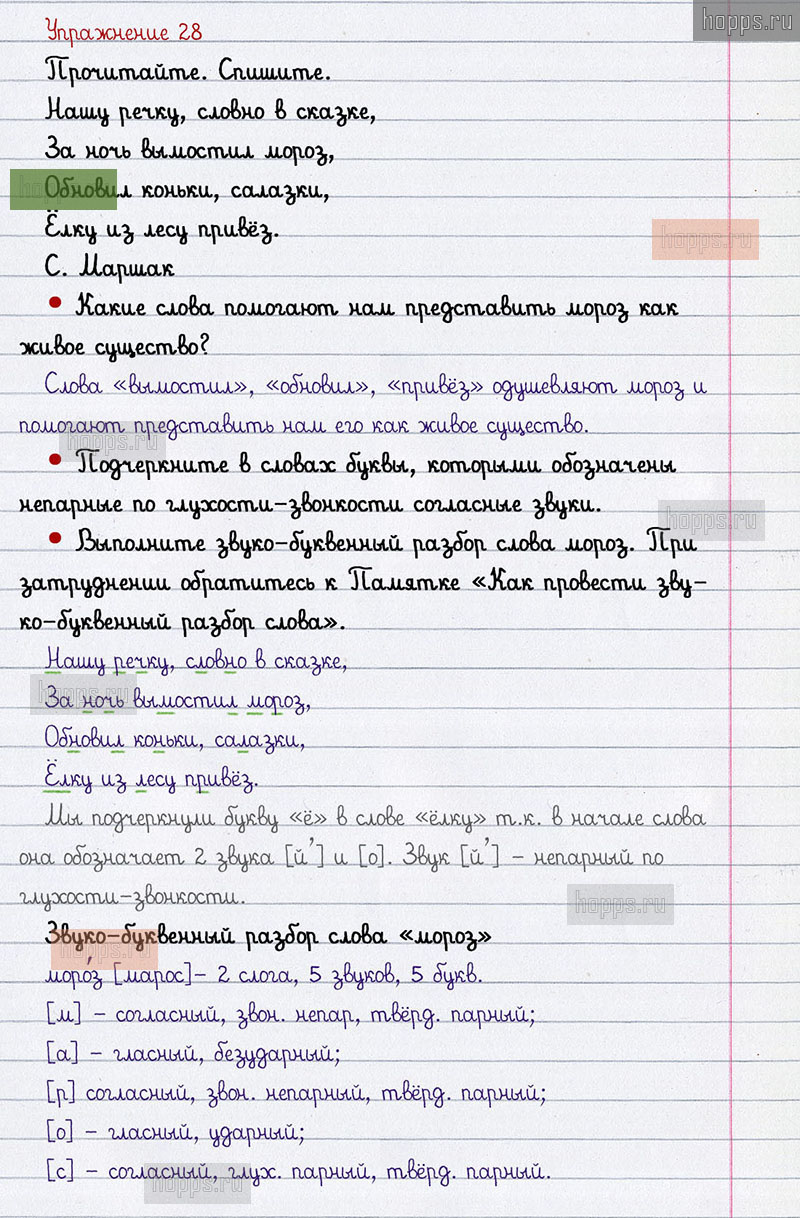 hopps.ru
Упражнение 28
Прочитайте. Спишите.
Нашу речку, словно в сказке,
За ночь вымостил мороз,
Обновил коньки, салазки,
Ёлку из лесу привёз.
hopps.ru
С. Маршак
• Какие слова помогают нам представить мороз как
живое существо?
Слова «вымостил», «обновил», «привёз» одушевляют мороз и
помогают представить нам его как живое существо.
hopps.ru
• Подчеркните в словах буквы, которыми обозначены
непарные по глухости-звонкости согласные звуки.
hopps.ru
• Выполните звуко-буквенный разбор слова мороз. При
затруднении обратитесь к Памятке «Как провести зву-
ко-буквенный разбор слова».
Нашу речку, словно в сказке,
hopps.ru
За ночь вымостил мороз,
Обновил коньки, салазки,
Ёлку из лесу привёз.
Мы подчеркнули букву «ё» в слове «ёлку» т.к. в начале слова
она обозначает 2 звука [й’] и [о]. Звук [й’] – непарный по
глухости-звонкости.
hopps.ru
Звуко-буквенный разбор слова «мороз»
hopps.ru
моро́з [марос]– 2 слога, 5 звуков, 5 букв.
[м] – согласный, звон. непар, твёрд. парный;
[а] – гласный, безударный;
[р] согласный, звон. непарный, твёрд. парный;
[о] – гласный, ударный;
[с] – согласный, глух. парный, твёрд. парный.
hopps.ru